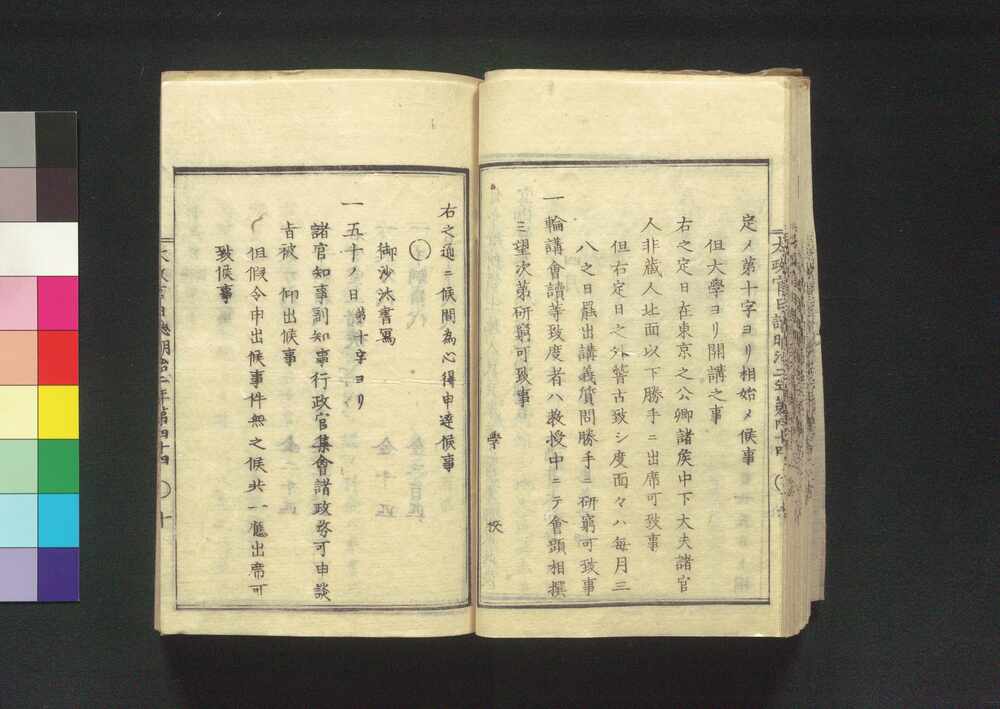 定メ第十字ヨリ相始メ候事
但大學ヨリ開講之事
右之定日在東京之公卿諸侯中下大夫諸官
人非蔵人址面以下勝手ニ出席可致事
但右定日之外稽古致シ度面々ハ毎月三
八之日罷出講義質問勝手ニ研窮可致事
一輪講會讀等致度者ハ教授中ニテ會頭相撰
ミ望次第研窮可致事
學校
右之通ニ候間為心得申達候事
〇
御沙汰書寫
一五十ノ日第十字ヨリ
諸官知事副知事行政官集會諸政務可申談
旨被 仰出候事
但假令申出候事件無之候共一應出席可
致候事
太政官日誌明治二年第四十四
〇十